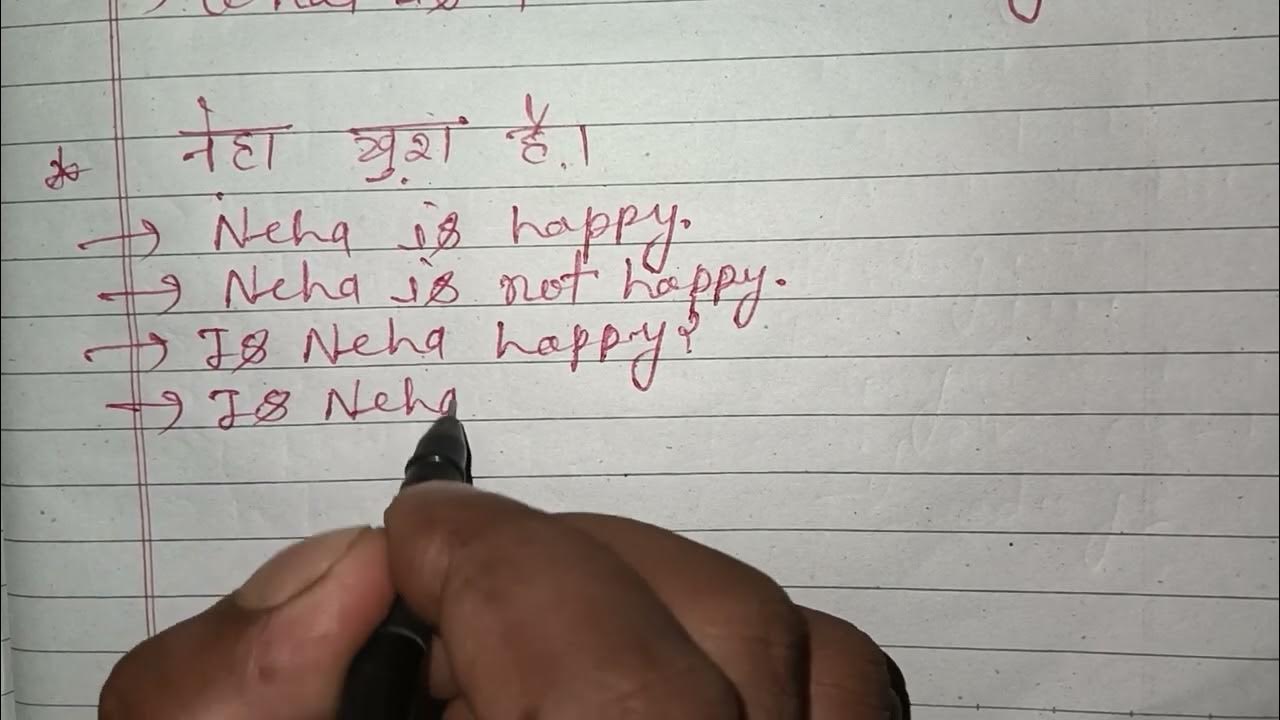 नेहा खुश है।
→ Neha is happy.
→ Neha is not happy.
→ Is Neha happy?
→ Is Neha